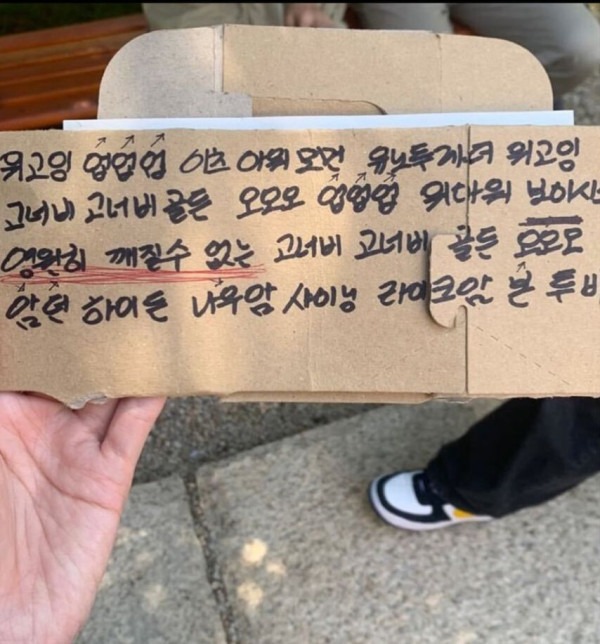 위고잉 업업업 이츠 아워 모먼 유노투게더 위고잉
고너비 고너비 골든 오오오 업업업 위다워
영원히 깨질수 없는 고너비 고너비 골든 오오오
암던 하이든 나우암 샤이닝 라이크암 본 투비